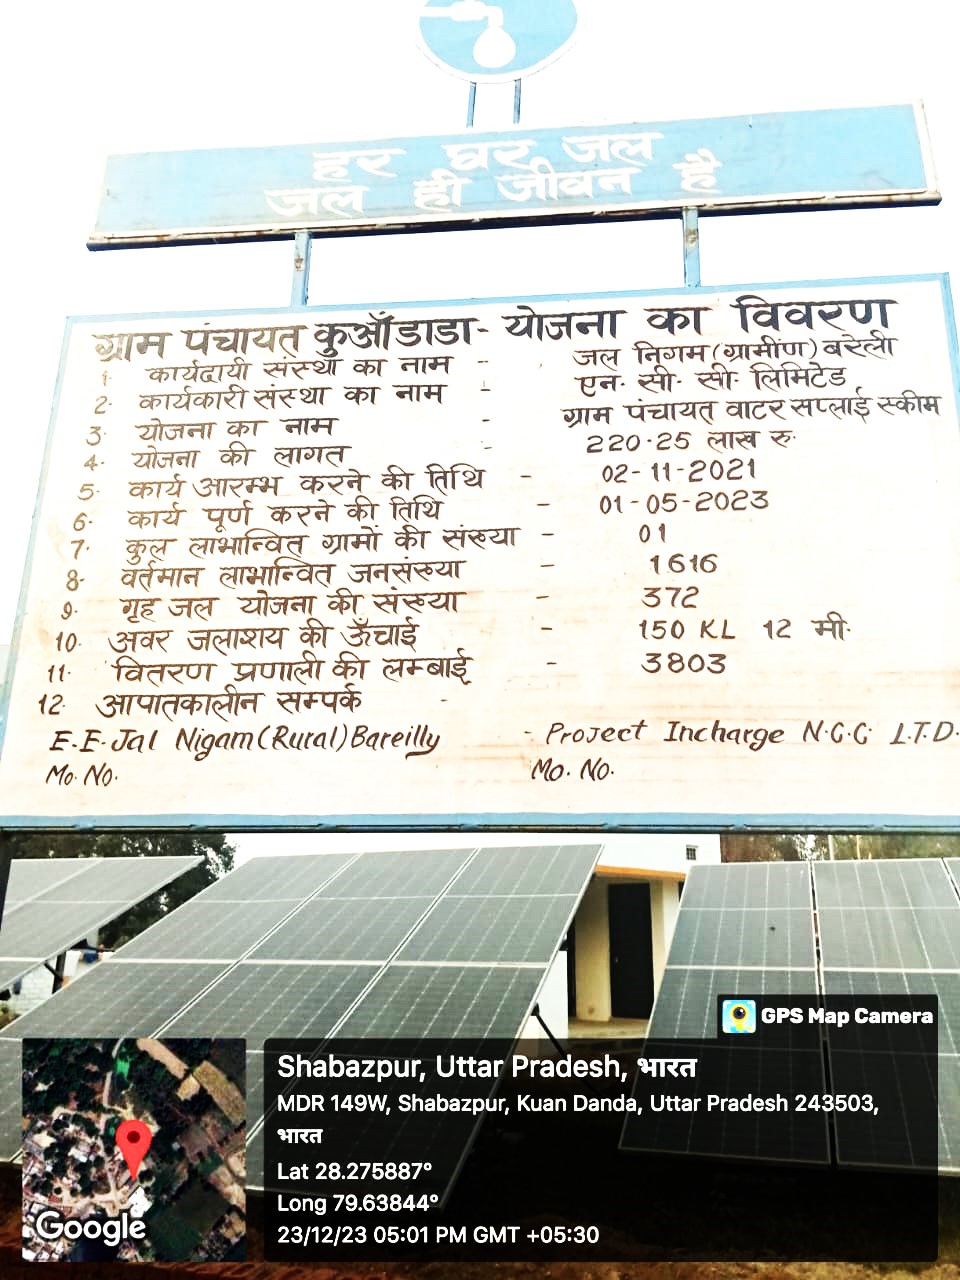 हर घर जल
जल ही जीवन है
ग्राम पंचायत कुआँडाडा - योजना का विवरण
1. कार्यदायी संस्था का नाम - जल निगम (ग्रामीण) बरेली
2. कार्यकारी संस्था का नाम - एन. सी. सी. लिमिटेड
3. योजना का नाम - ग्राम पंचायत वाटर सप्लाई स्कीम
4. योजना की लागत - 220.25 लाख रु.
5. कार्य आरम्भ करने की तिथि - 02-11-2021
6. कार्य पूर्ण करने की तिथि - 01-05-2023
7. कुल लाभान्वित ग्रामों की संख्या - 01
8. वर्तमान लाभान्वित जनसंख्या - 1616
9. गृह जल योजना की संख्या - 372
10. अवर जलाशय की ऊँचाई - 150 KL 12 मी.
11. वितरण प्रणाली की लम्बाई - 3803
12. आपातकालीन सम्पर्क -
E.E. Jal Nigam (Rural) Bareilly - Project Incharge N.C.C. L.T.D.
Mo. No. Mo. No.
GPS Map Camera
Shabazpur, Uttar Pradesh, भारत
MDR 149W, Shabazpur, Kuan Danda, Uttar Pradesh 243503,
भारत
Lat 28.275887°
Long 79.63844°
23/12/23 05:01 PM GMT +05:30
Google